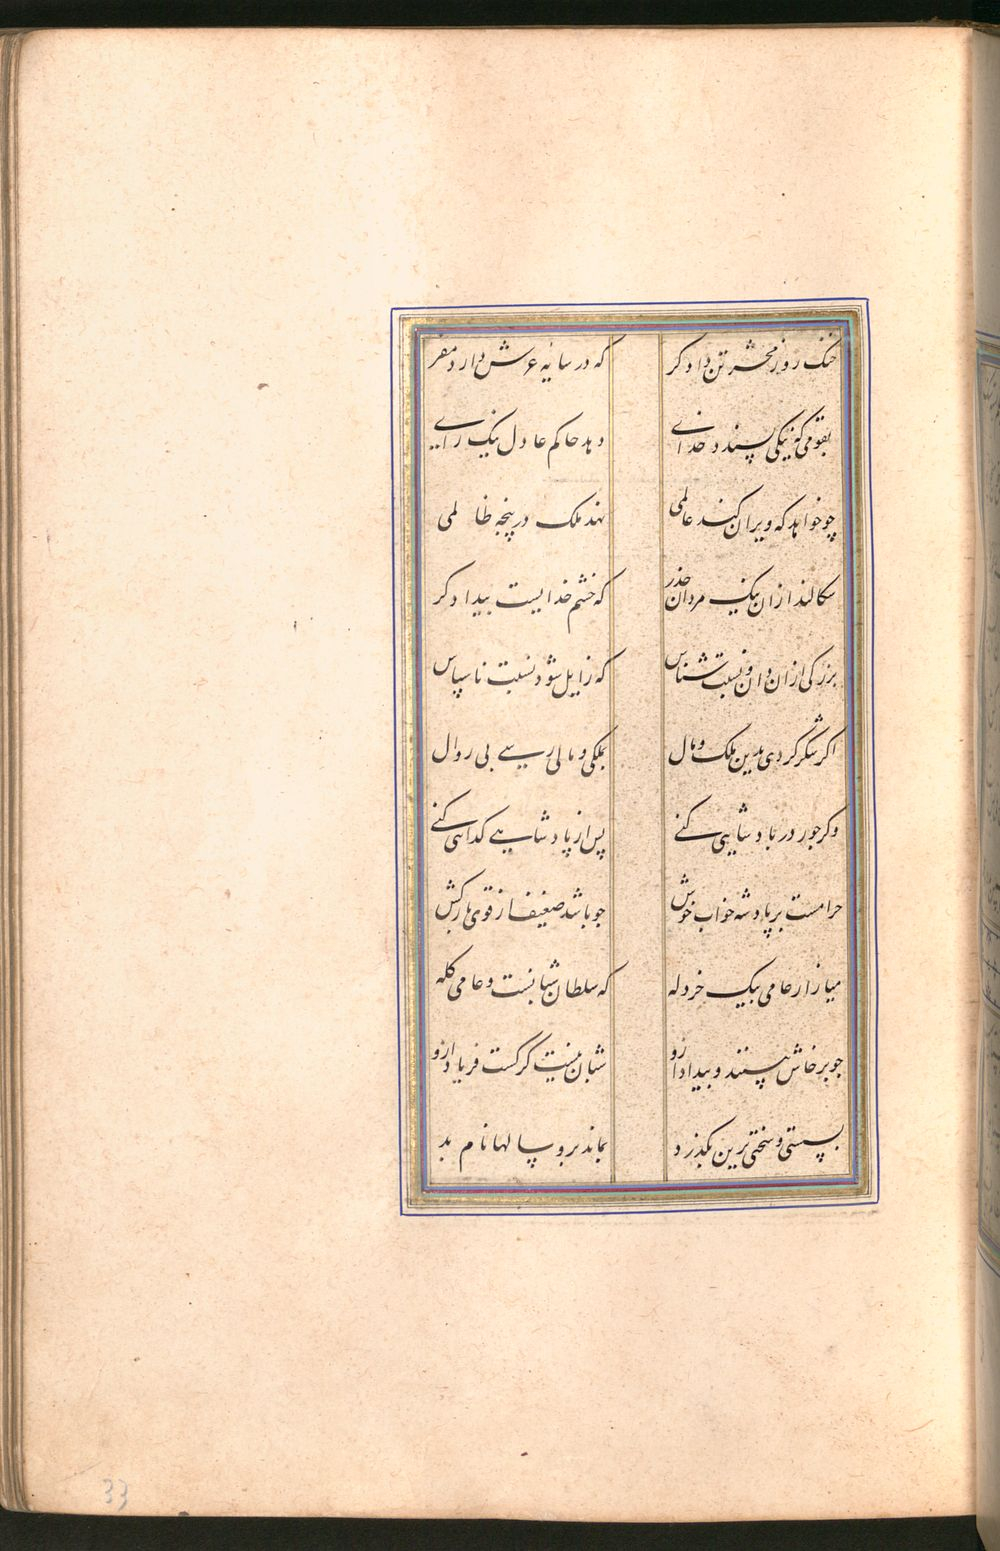 خنک روز محشر تن دادکر که در سایه عرش دارد مفر
بقومی که نیکی پسندد خدای دهد حاکم عادل نیک رای
چو خواهد که ویران کند عالمی نهد ملک در پنجه ظالمی
سکالند ازان نیک مردان حذر که خشم خدایست بیدادکر
بزرکی ازان دان و نسبت شناس که زایل شود نسبت ناسپاس
اکر شکر کردی بدین ملک و مال بملکی و مالی رسی بی زوال
وکر جور در پادشایی کنی پس از پادشایی کدایی کنی
حرامست بر پادشه خواب خوش جو باشد ضعیف از قوی بارکش
میازار عامی بیک خردله که سلطان شبانست و عامی کله
جو برخاش پسنند و بیداد ازو شبان نیست کرکست فریاد ازو
بسستی و سختی ترین بکذرد بماند برو سالها نام بد
33